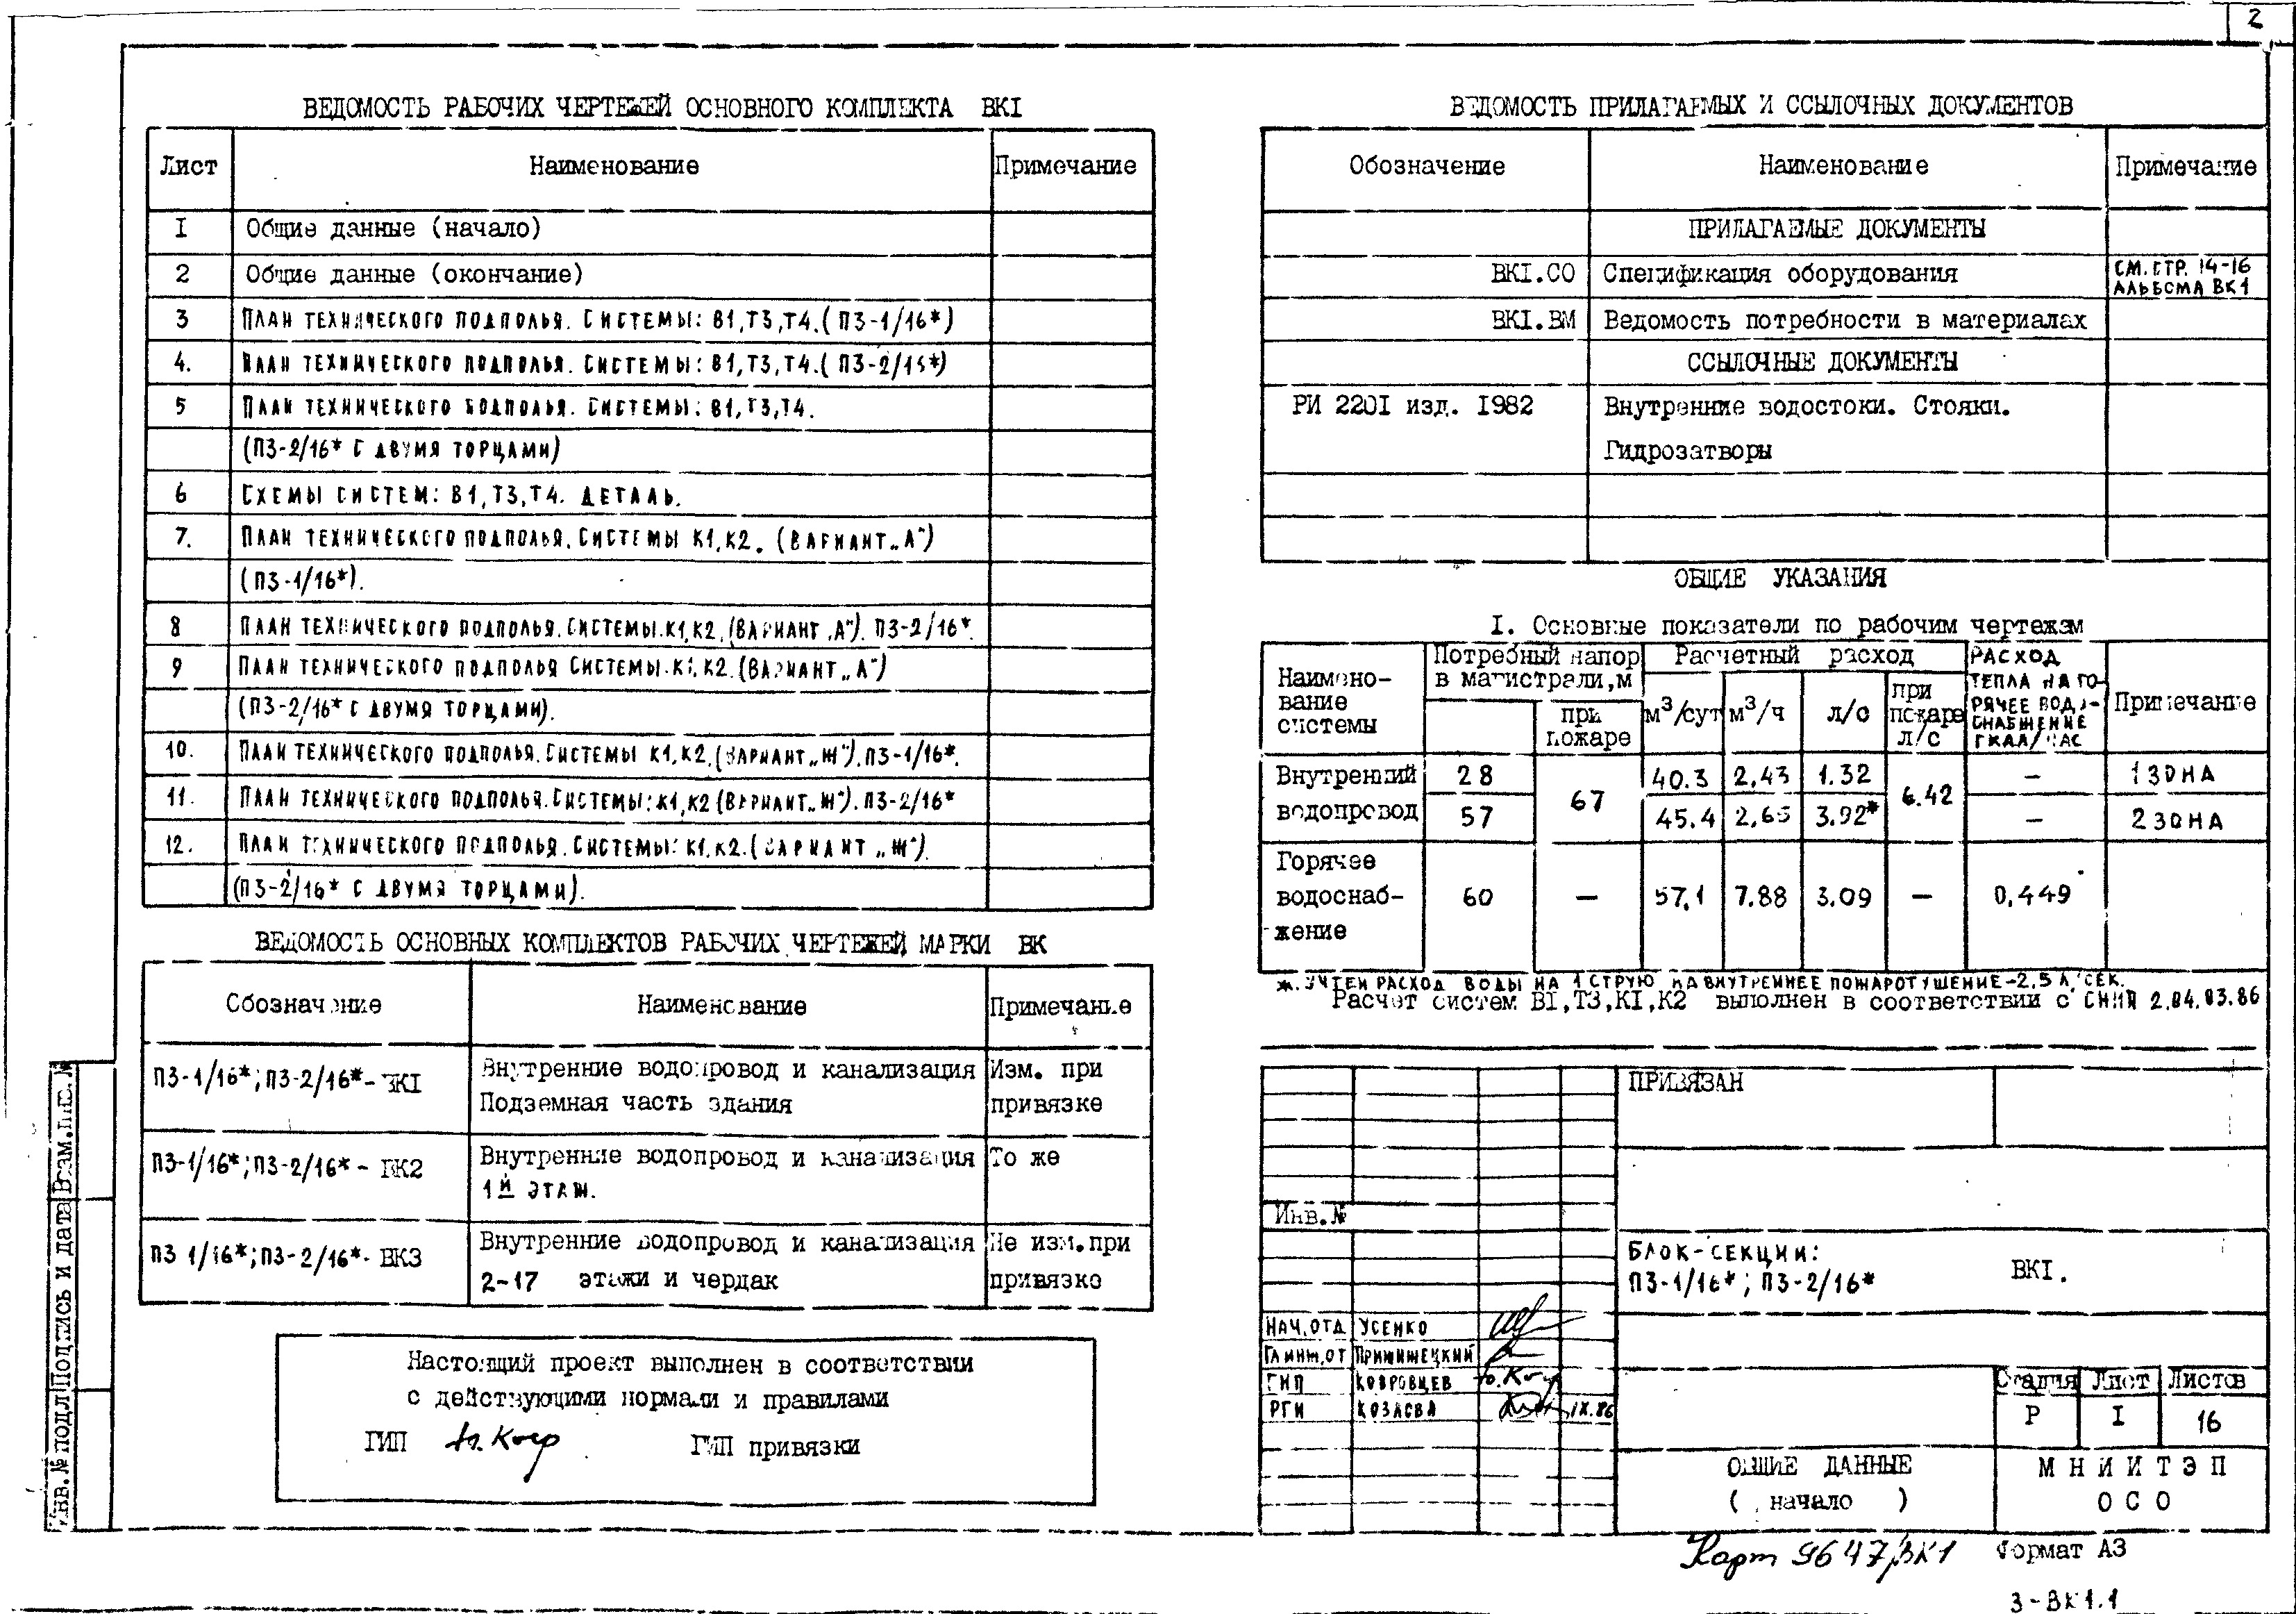 2
ВЕДОМОСТЬ РАБОЧИХ ЧЕРТЕЖЕЙ ОСНОВНОГО КОМПЛЕКТА ВКI
Лист Наименование Примечание
I Общие данные (начало)
2 Общие данные (окончание)
3 ПЛАН ТЕХНИЧЕСКОГО ПОДПОЛЬЯ. СИСТЕМЫ: В1,Т3,Т4.(П3-1/16*)
4. ПЛАН ТЕХНИЧЕСКОГО ПОДПОЛЬЯ. СИСТЕМЫ: В1,Т3,Т4.(П3-2/16*)
5 ПЛАН ТЕХНИЧЕСКОГО ПОДПОЛЬЯ. СИСТЕМЫ: В1,Т3,Т4.
(П3-2/16* С ДВУМЯ ТОРЦАМИ)
6 СХЕМЫ СИСТЕМ: В1,Т3,Т4. ДЕТАЛЬ.
7. ПЛАН ТЕХНИЧЕСКОГО ПОДПОЛЬЯ. СИСТЕМЫ К1,К2. (ВАРИАНТ „А")
(П3-1/16*).
8 ПЛАН ТЕХНИЧЕСКОГО ПОДПОЛЬЯ. СИСТЕМЫ.К1,К2.(ВАРИАНТ „А"). П3-2/16*.
9 ПЛАН ТЕХНИЧЕСКОГО ПОДПОЛЬЯ СИСТЕМЫ.К1,К2.(ВАРИАНТ „А")
(П3-2/16* С ДВУМЯ ТОРЦАМИ).
10. ПЛАН ТЕХНИЧЕСКОГО ПОДПОЛЬЯ. СИСТЕМЫ К1,К2.(ВАРИАНТ „Ж"). П3-1/16*.
11. ПЛАН ТЕХНИЧЕСКОГО ПОДПОЛЬЯ. СИСТЕМЫ: К1,К2 (ВАРИАНТ „Ж"). П3-2/16*
12. ПЛАН ТЕХНИЧЕСКОГО ПОДПОЛЬЯ. СИСТЕМЫ: К1,К2.(ВАРИАНТ „Ж").
(П3-2/16* С ДВУМЯ ТОРЦАМИ).
ВЕДОМОСТЬ ОСНОВНЫХ КОМПЛЕКТОВ РАБОЧИХ ЧЕРТЕЖЕЙ МАРКИ ВК
Обозначение Наименование Примечание
П3-1/16*; П3-2/16*- ВКI Внутренние водопровод и канализация Изм. при
Подземная часть здания привязке
П3-1/16*; П3-2/16* - ВК2 Внутренние водопровод и канализация То же
1й ЭТАЖ.
П3 1/16*; П3-2/16*- ВК3 Внутренние водопровод и канализация Не изм.при
2-17 этажи и чердак привязке
Настоящий проект выполнен в соответствии
с действующими нормами и правилами
ГИП ГИП привязки
Инв.№ подл Подпись и дата Взам.инв.№
ВЕДОМОСТЬ ПРИЛАГАЕМЫХ И ССЫЛОЧНЫХ ДОКУМЕНТОВ
Обозначение Наименование Примечание
ПРИЛАГАЕМЫЕ ДОКУМЕНТЫ
ВКI.СО Спецификация оборудования СМ.СТР. 14-16
АЛЬБОМА ВК1
ВКI.ВМ Ведомость потребности в материалах
ССЫЛОЧНЫЕ ДОКУМЕНТЫ
РИ 220I изд. I982 Внутренние водостоки. Стояки.
Гидрозатворы
ОБЩИЕ УКАЗАНИЯ
I. Основные показатели по рабочим чертежам
Наимено-
вание
системы
Потребный напор
в магистрали,м
при
пожаре
Расчетный расход
м³/сут м³/ч л/с
при
пожаре
л/с
РАСХОД
ТЕПЛА НА ГО-
РЯЧЕЕ ВОДО-
СНАБЖЕНИЕ
ГКАЛ/ЧАС
Примечание
Внутренний 28 67 40.3 2,43 1.32 6.42 – 1 ЗОНА
водопровод 57 45.4 2,65 3.92* – 2 ЗОНА
Горячее
водоснаб- 60 – 57,1 7.88 3.09 – 0,449
жение
ж. УЧТЕН РАСХОД ВОДЫ НА 1 СТРУЮ НА ВНУТРЕННЕЕ ПОЖАРОТУШЕНИЕ-2,5 Л/СЕК.
Расчет систем ВI,Т3,КI,К2 выполнен в соответствии с СНИП 2.04.03.86
ПРИВЯЗАН
Инв.№
БЛОК-СЕКЦИИ:
П3-1/16*; П3-2/16* ВКI.
НАЧ.ОТД УСЕНКО
ГЛ ИНЖ.ОТ
ГИП КОВРОВЦЕВ
РГИ 1X.86
Стадия Лист Листов
Р I 16
ОБЩИЕ ДАННЫЕ
( начало )
МНИИТЭП
ОСО
Карт 9647/ВК1 Формат А3
3-ВК1.1